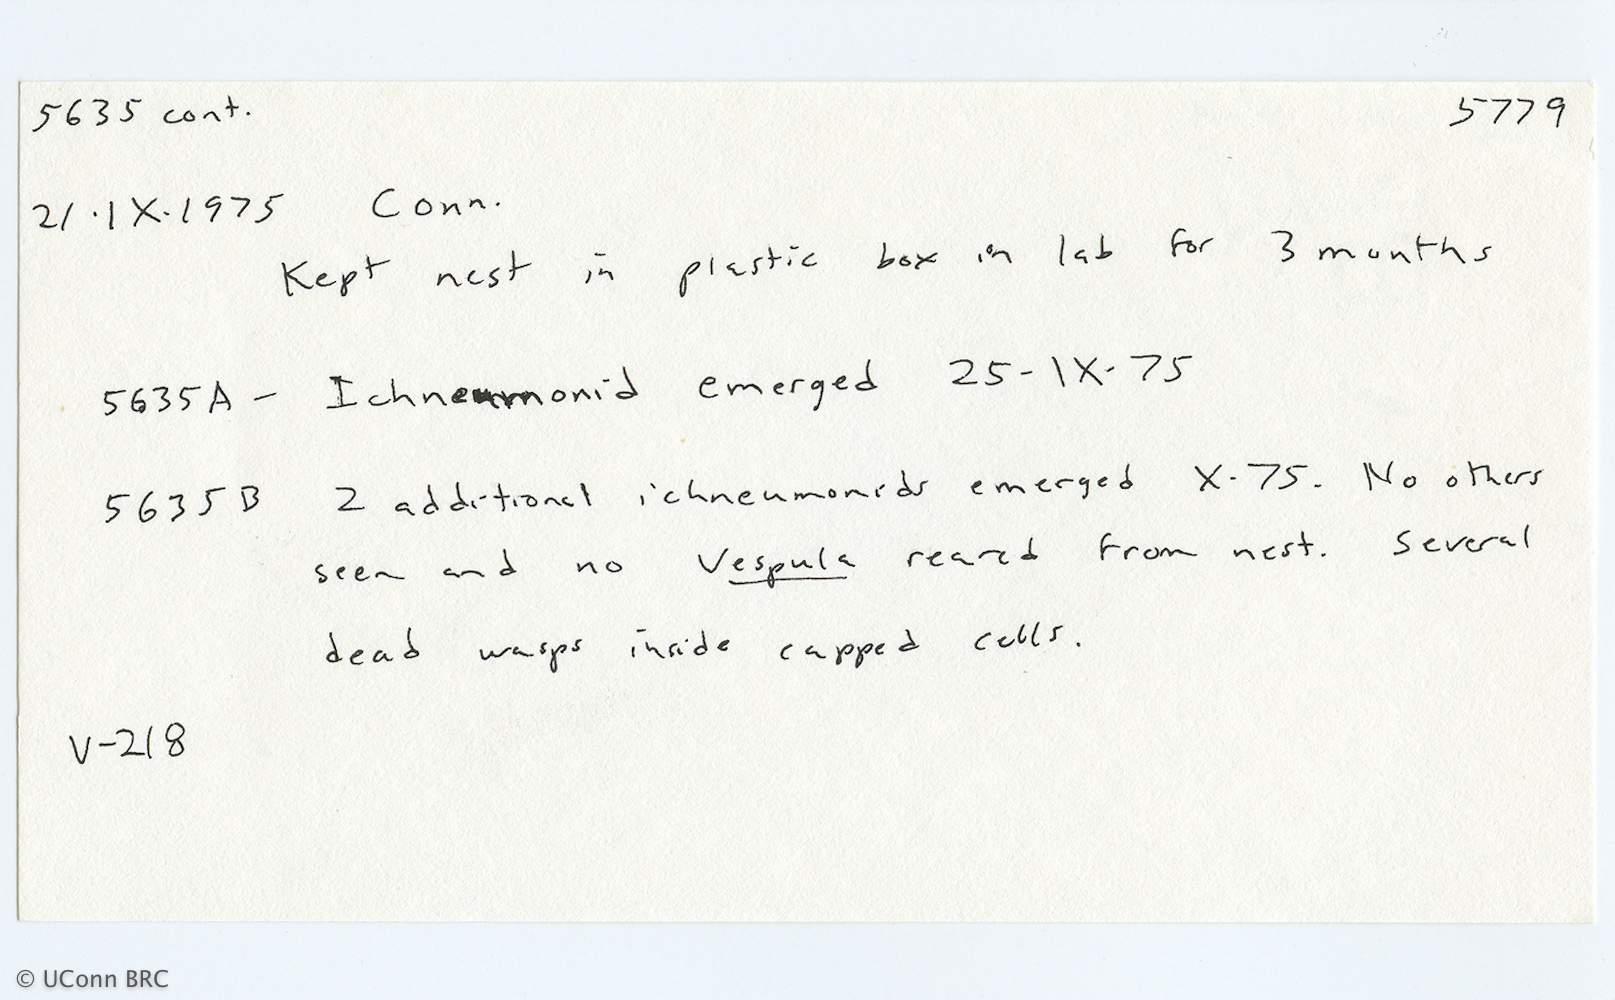 5635 cont. 5779
21·IX·1975 Conn.
Kept nest in plastic box in lab for 3 months
5635A – Ichneumonid emerged 25-IX-75
5635B 2 additional ichneumonids emerged X-75. No others
seen and no Vespula reared from nest. Several
dead wasps inside capped cells.
V-218
© UConn BRC